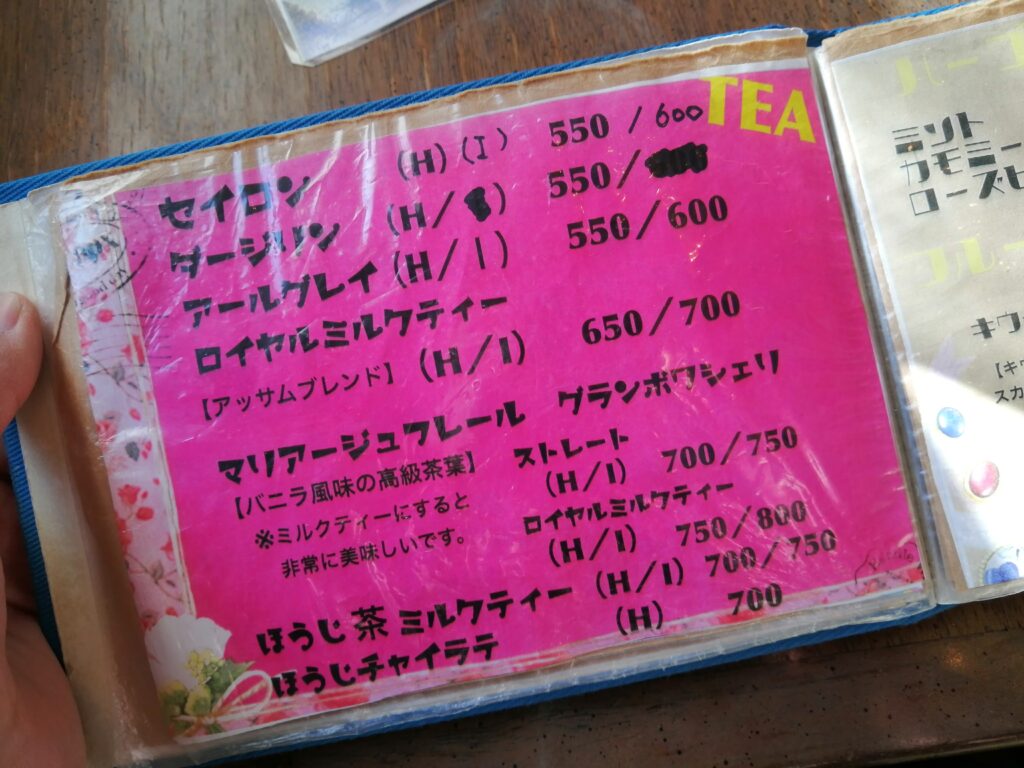 TEA
セイロン (H)(I) 550/600
ダージリン (H/ ) 550/
アールグレイ (H/I) 550/600
ロイヤルミルクティー
【アッサムブレンド】 (H/I) 650/700
マリアージュフレール グランボワシェリ
【バニラ風味の高級茶葉】 ストレート
(H/I) 700/750
※ミルクティーにすると ロイヤルミルクティー
非常に美味しいです。 (H/I) 750/800
ほうじ茶ミルクティー (H/I) 700/750
ほうじチャイラテ (H) 700
ミント
カモミー
ローズヒ
キウ
【キウ
スカ